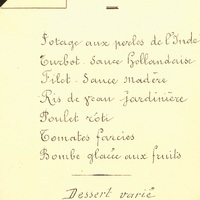 Potage aux perles de l'Inde
Turbot. Sauce Hollandaise
Filet. Sauce madère
Ris de veau jardinière
Poulet rôti
Tomates farcies
Bombe glacée aux fruits
Dessert varié